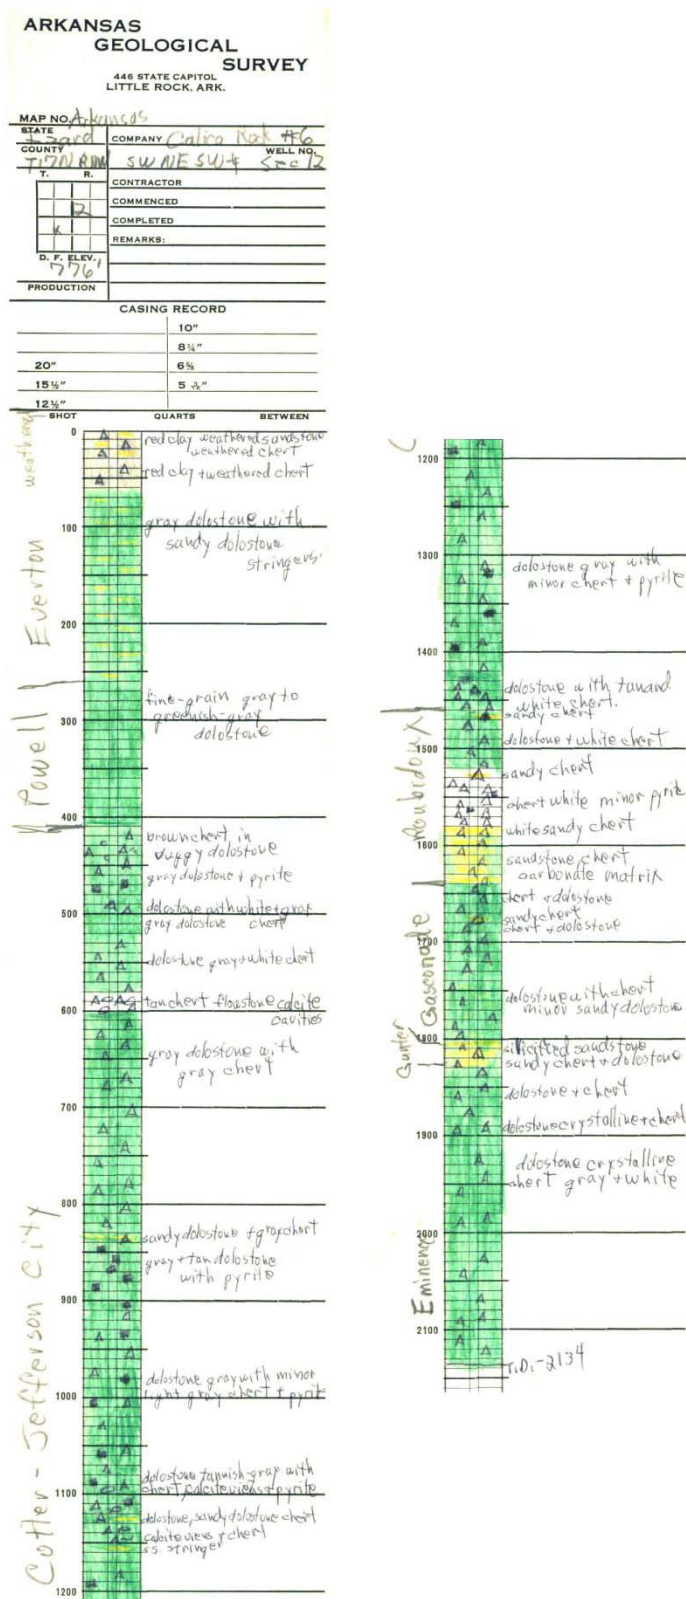 ARKANSAS
GEOLOGICAL
SURVEY
446 STATE CAPITOL
LITTLE ROCK, ARK.
MAP NO. Arkansas
STATE Izard
COMPANY Calico Rock #6
COUNTY
WELL NO.
T17N R11W SW NE SW4 Sec 12
T. R.
CONTRACTOR
COMMENCED
12
COMPLETED
x
REMARKS:
D. F. ELEV.
776'
PRODUCTION
CASING RECORD
10"
8¼"
20" 6⅝
15½"
12½"
SHOT QUARTS BETWEEN
weathered
0
red clay weathered sandstone
weathered chert
red clay + weathered chert
Everton
100
gray dolostone with
sandy dolostone
stringers
200
Powell
fine-grain gray to
greenish-gray
dolostone
300
400
brown chert in
vuggy dolostone
gray dolostone + pyrite
500
dolostone with white + gray
gray dolostone chert
dolostone gray + white chert
600
tan chert flowstone calcite
cavities
gray dolostone with
gray chert
700
800
sandy dolostone + gray chert
gray + tan dolostone
with pyrite
900
Cotter - Jefferson City
dolostone gray with minor
light gray chert + pyrite
1000
dolostone tannish-gray with
chert, calcite viens + pyrite
1100
dolostone, sandy dolostone chert
calcite viens + chert
s.s. stringer
1200
1200
1300
dolostone gray with
minor chert + pyrite
1400
dolostone with tan and
white chert.
sandy chert
Roubidoux
dolostone + white chert
1500
sandy chert
chert white minor pyrite
white sandy chert
1600
sandstone chert
carbonate matrix
Gasconade
chert + dolostone
sandy chert
chert + dolostone
1700
dolostone with chert
minor sandy dolostone
Gunter
1800
silicified sandstone
sandy chert + dolostone
dolostone + chert
1900
dolostone crystalline + chert
dolostone crystalline
chert gray + white
2000
Eminence
2100
T.D. - 2134